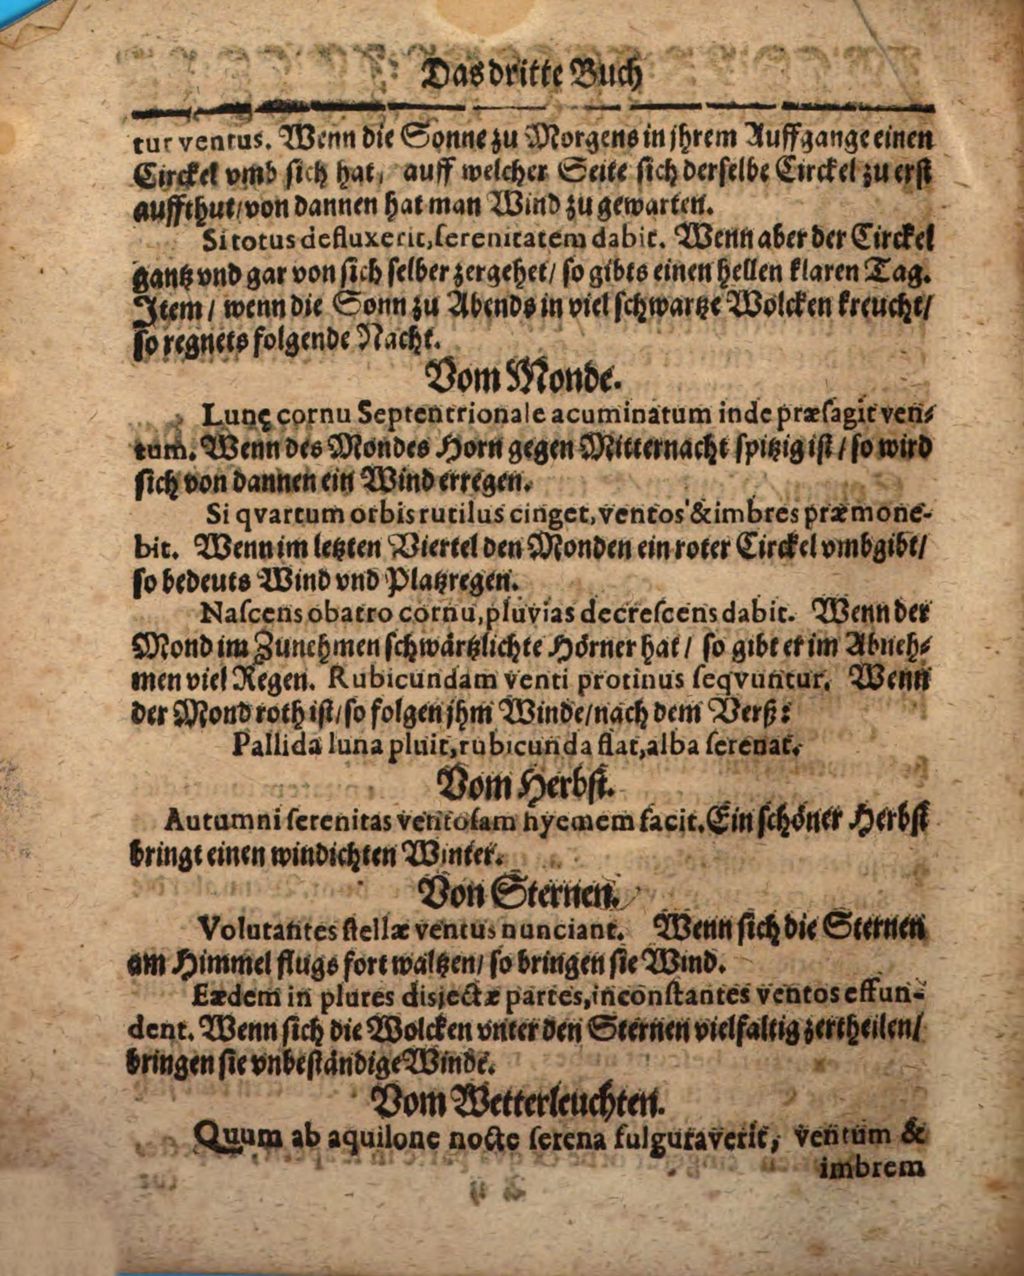 Das dritte Buch
tur ventus. Wenn die Sonne zu Morgens in jhrem Auffgange einen
Circkel vmb sich hat, auff welcher Seite sich derselbe Circkel zu erst
auffthut/ von dannen hat man Wind zu gewarten.
Si totus defluxerit, ſerenitatem dabit. Wenn aber der Circkel
gantz vnd gar von sich selber zergehet/ so gibts einen hellen klaren Tag.
Item/ wenn die Sonn zu Abends in viel schwartze Wolcken kreucht/
so regnets folgende Nacht.
Vom Monde.
Lunę cornu Septentrionale acuminatum inde præſagit ven⸗
tum. Wenn des Mondes Horn gegen Mitternacht spitzig ist/ so wird
sich von dannen ein Wind erregen.
Si qvartum orbis rutilus cinget, ventos & imbres præmone-
bit. Wenn im letzten Viertel den Monden ein roter Circkel vmbgibt/
so bedeuts Wind vnd Platzregen.
Naſcens obatro cornu, pluvias decreſcens dabit. Wenn der
Mond im Zunehmen schwärtzlichte Hörner hat/ so gibt er im Abneh⸗
men viel Regen. Rubicundam venti protinus ſeqvuntur. Wenn
der Mond roth ist/ so folgen jhm Winde/ nach dem Verß:
Pallida luna pluit, rubicunda flat, alba ſerenat.
Vom Herbst.
Autumni ſerenitas ventoſam hyemem facit. Ein schöner Herbst
bringt einen windichten Winter.
Von Sternen.
Volutantes ſtellæ ventus nunciant. Wenn sich die Sternen
am Himmel flugs fort waltzen/ so bringen sie Wind.
Eædem in plures disjectæ partes, inconſtantes ventos effun-
dent. Wenn sich die Wolcken vnter den Sternen vielfaltig zertheilen/
bringen sie vnbeständige Winde.
Vom Wetterleuchten.
Quum ab aquilone nocte ſerena fulguraverit, ventum &
imbrem